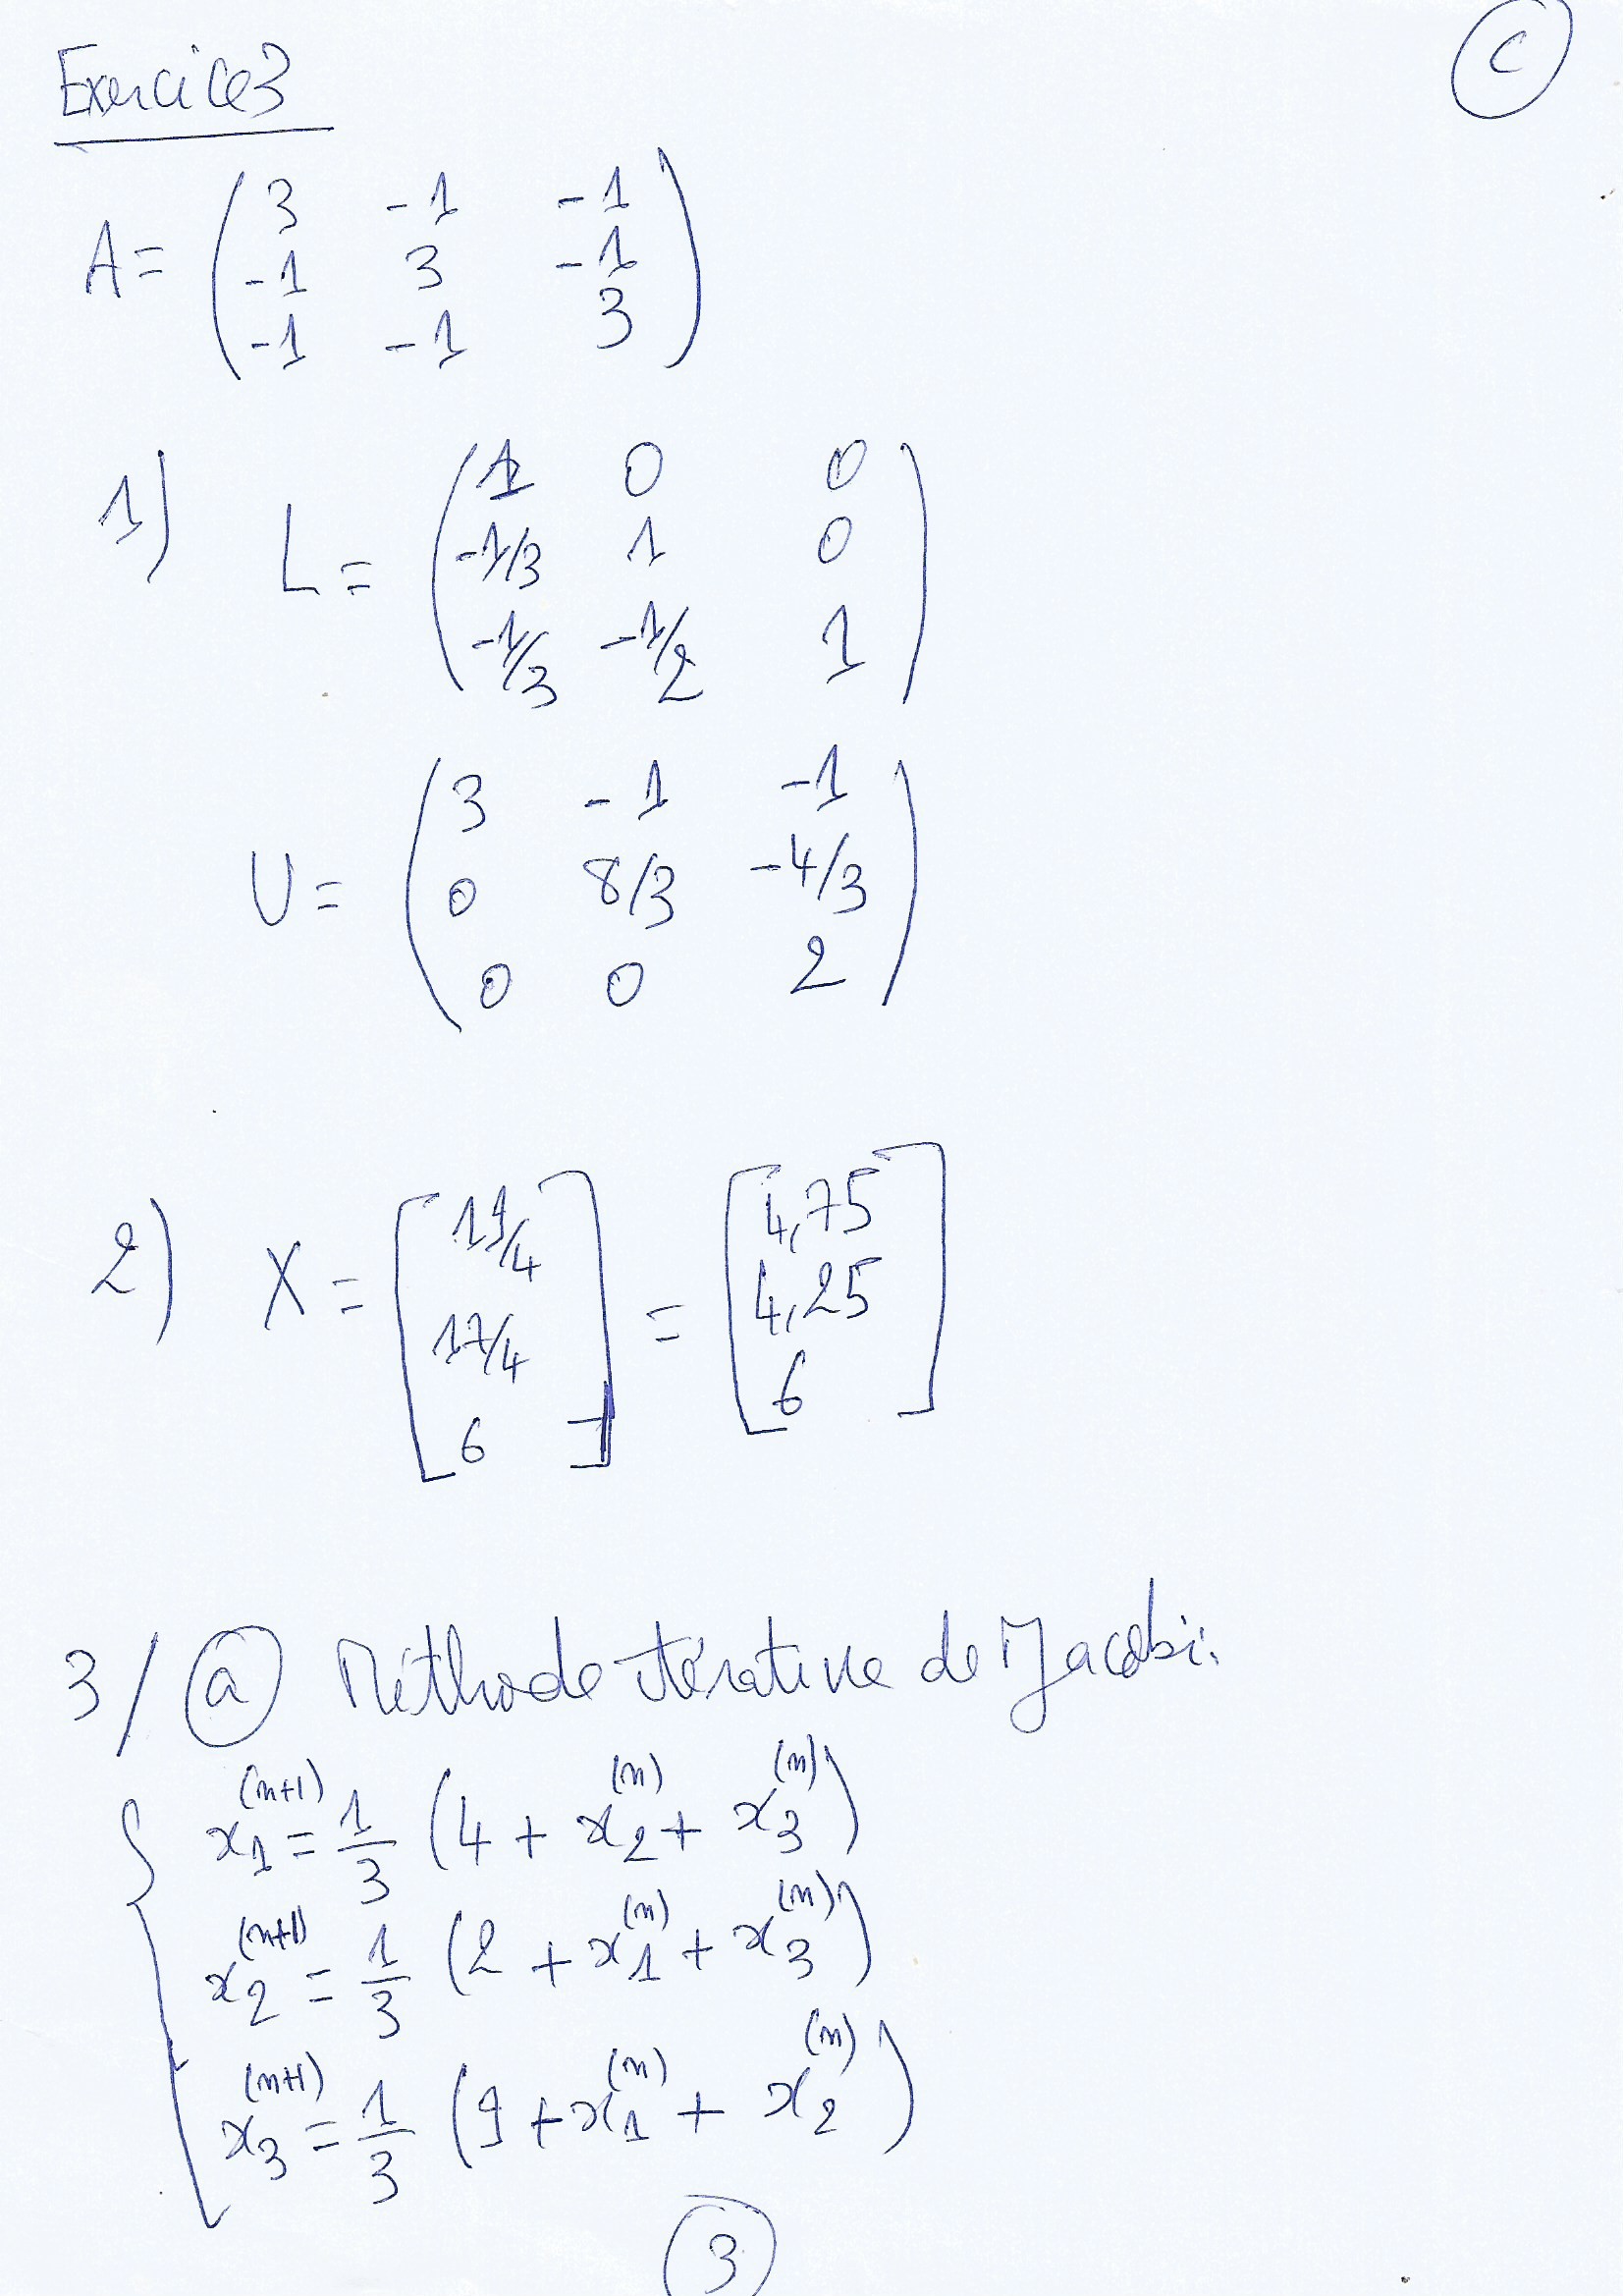 Exercice 3
C
A = ( 3 -1 -1
-1 3 -1
-1 -1 3 )
1) L = ( 1 0 0
-1/3 1 0
-1/3 -1/2 1 )
U = ( 3 -1 -1
0 8/3 -4/3
0 0 2 )
2) X = [ 19/4 17/4 6 ] = [ 4,75 4,25 6 ]
3/ a Méthode itérative de Jacobi:
x₁^(n+1) = 1/3 (4 + x₂^(n) + x₃^(n))
x₂^(n+1) = 1/3 (2 + x₁^(n) + x₃^(n))
x₃^(n+1) = 1/3 (9 + x₁^(n) + x₂^(n))
3